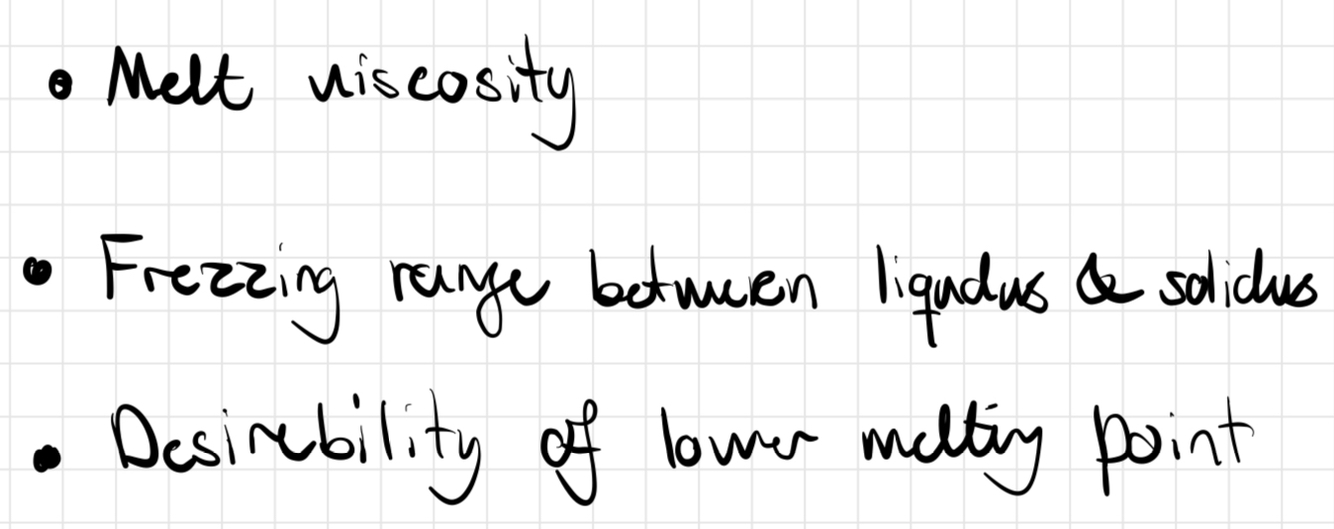 • Melt viscosity
• Frezzing range between liqudus & solidus
• Desirability of lower melting point